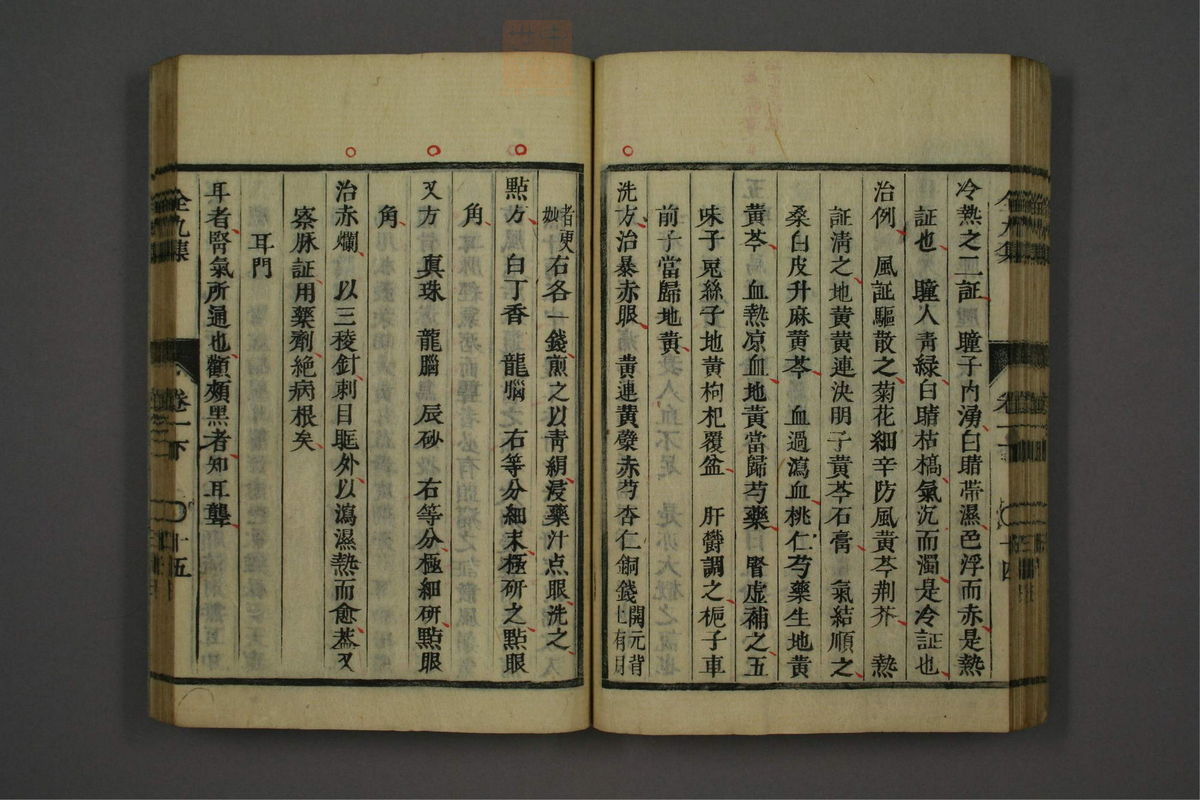 冷熱之二証瞳子内湧白睛帶濕色浮而赤是熱
証也 瞳人青緑白睛枯槁氣沉而濁是冷証也
治例 風証驅散之菊花細辛防風黄芩荆芥 熱
証清之地黄黄連決明子黄芩石膏 氣結順之
桑白皮升麻黄芩 血過瀉血桃仁芍藥生地黄
黄芩 血熱凉血地黄當歸芍藥 腎虚補之五
味子兎絲子地黄枸杞覆盆 肝欝調之梔子車
前子當歸地黄
洗方治暴赤眼 黄連黄蘗赤芍杏仁銅錢開元背上有月
者更妙右各一錢煎之以青絹浸藥汁点眼洗之
點方 白丁香 龍腦 右等分細末極研之點眼
角
又方 真珠 龍腦 辰砂 右等分極細研點眼
角
治赤爛 以三稜針刺目眶外以瀉濕熱而愈蓋又
察脉証用藥劑絶病根矣
耳門
耳者腎氣所通也顴頰黒者知耳聾
全九集
卷一下
十五